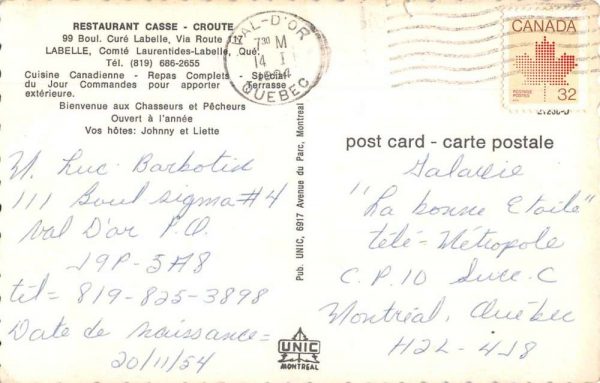 RESTAURANT CASSE - CROUTE
99 Boul. Curé Labelle, Via Route 11
LABELLE, Comté Laurentides-Labelle, Qué.
Tél. (819) 686-2655
Cuisine Canadienne - Repas Complets - Spécial
du Jour Commandes pour apporter - Terrasse
extérieure.
Bienvenue aux Chasseurs et Pêcheurs
Ouvert à l'année
Vos hôtes: Johnny et Liette
VAL-D'OR
7 30 M
14 I
1984
QUEBEC
CANADA
POSTAGE
POSTES
32
post card - carte postale
Pub. UNIC, 6917 Avenue du Parc, Montreal
M. Luc Barbotin
111 Boul sigma #4
Val D'or P.Q.
J9P-5A8
tél= 819-825-3898
Date de naissance=
20/11/54
Galaxie
"La bonne Etoile"
télé-Métropole
C.P. 10 Succ. C
Montréal, Québec
H2L-4J8
UNIC
MONTREAL